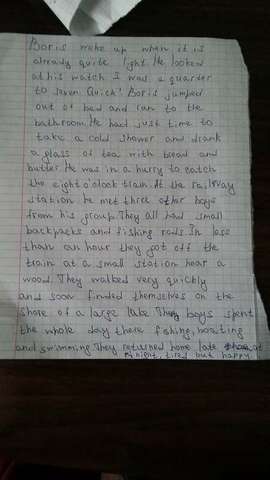 Boris wake up when it is
already quite light. He looked
at his watch I was a quarter
to seven. Quick! Boris jumped
out of bed and ran to the
bathroom. He had just time to
take a cold shower and drank
a glass of tea with bread and
butter He was in a hurry to catch
the eight o'clock train. At the railway
station he met three other boys
from his group. They all had small
backpacks and fishing rods In less
than an hour they got off the
train at a small station near a
wood. They walked very quickly
and soon finded themselves on the
shore of a large lake The boys spent
the whole day there fishing, boating
and swimming They returned home late at
night, tired but happy